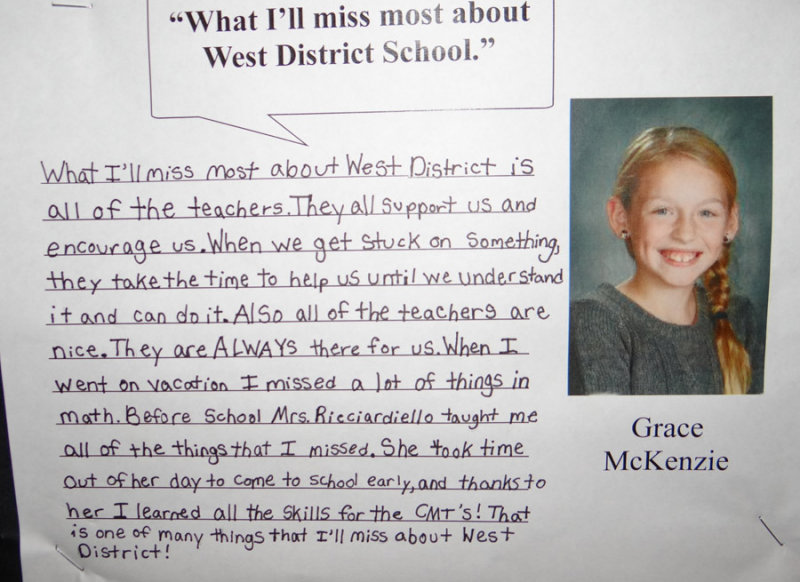 “What I’ll miss most about
West District School.”
What I'll miss most about West District is
all of the teachers. They all support us and
encourage us. When we get stuck on something,
they take the time to help us until we understand
it and can do it. Also all of the teachers are
nice. They are ALWAYS there for us. When I
went on vacation I missed a lot of things in
math. Before school Mrs. Ricciardiello taught me
all of the things that I missed. She took time
out of her day to come to school early, and thanks to
her I learned all the skills for the CMT's! That
is one of many things that I'll miss about West
District!
Grace
McKenzie